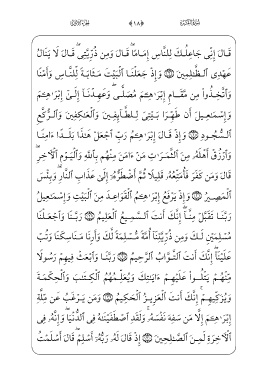 سُورَةُ البَقَرَةِ ﴿١٨﴾ الجُزْءُ الأَوَّلُ
قَالَ إِنِّي جَاعِلُكَ لِلنَّاسِ إِمَامًا قَالَ وَمِن ذُرِّيَّتِي قَالَ لَا يَنَالُ
عَهْدِي ٱلظَّٰلِمِينَ ﴿١٢٤﴾ وَإِذْ جَعَلْنَا ٱلْبَيْتَ مَثَابَةً لِّلنَّاسِ وَأَمْنًا
وَٱتَّخِذُوا۟ مِن مَّقَامِ إِبْرَٰهِـۧمَ مُصَلًّى وَعَهِدْنَآ إِلَىٰٓ إِبْرَٰهِـۧمَ
وَإِسْمَٰعِيلَ أَن طَهِّرَا بَيْتِيَ لِلطَّآئِفِينَ وَٱلْعَٰكِفِينَ وَٱلرُّكَّعِ
ٱلسُّجُودِ ﴿١٢٥﴾ وَإِذْ قَالَ إِبْرَٰهِـۧمُ رَبِّ ٱجْعَلْ هَٰذَا بَلَدًا ءَامِنًا
وَٱرْزُقْ أَهْلَهُۥ مِنَ ٱلثَّمَرَٰتِ مَنْ ءَامَنَ مِنْهُم بِٱللَّهِ وَٱلْيَوْمِ ٱلْـَٔاخِرِ
قَالَ وَمَن كَفَرَ فَأُمَتِّعُهُۥ قَلِيلًا ثُمَّ أَضْطَرُّهُۥٓ إِلَىٰ عَذَابِ ٱلنَّارِ وَبِئْسَ
ٱلْمَصِيرُ ﴿١٢٦﴾ وَإِذْ يَرْفَعُ إِبْرَٰهِـۧمُ ٱلْقَوَاعِدَ مِنَ ٱلْبَيْتِ وَإِسْمَٰعِيلُ
رَبَّنَا تَقَبَّلْ مِنَّآ إِنَّكَ أَنتَ ٱلسَّمِيعُ ٱلْعَلِيمُ ﴿١٢٧﴾ رَبَّنَا وَٱجْعَلْنَا
مُسْلِمَيْنِ لَكَ وَمِن ذُرِّيَّتِنَآ أُمَّةً مُّسْلِمَةً لَّكَ وَأَرِنَا مَنَاسِكَنَا وَتُبْ
عَلَيْنَآ إِنَّكَ أَنتَ ٱلتَّوَّابُ ٱلرَّحِيمُ ﴿١٢٨﴾ رَبَّنَا وَٱبْعَثْ فِيهِمْ رَسُولًا
مِّنْهُمْ يَتْلُوا۟ عَلَيْهِمْ ءَايَٰتِكَ وَيُعَلِّمُهُمُ ٱلْكِتَٰبَ وَٱلْحِكْمَةَ
وَيُزَكِّيهِمْ إِنَّكَ أَنتَ ٱلْعَزِيزُ ٱلْحَكِيمُ ﴿١٢٩﴾ وَمَن يَرْغَبُ عَن مِّلَّةِ
إِبْرَٰهِـۧمَ إِلَّا مَن سَفِهَ نَفْسَهُۥ وَلَقَدِ ٱصْطَفَيْنَٰهُ فِي ٱلدُّنْيَا وَإِنَّهُۥ فِي
ٱلْـَٔاخِرَةِ لَمِنَ ٱلصَّٰلِحِينَ ﴿١٣٠﴾ إِذْ قَالَ لَهُۥ رَبُّهُۥٓ أَسْلِمْ قَالَ أَسْلَمْتُ